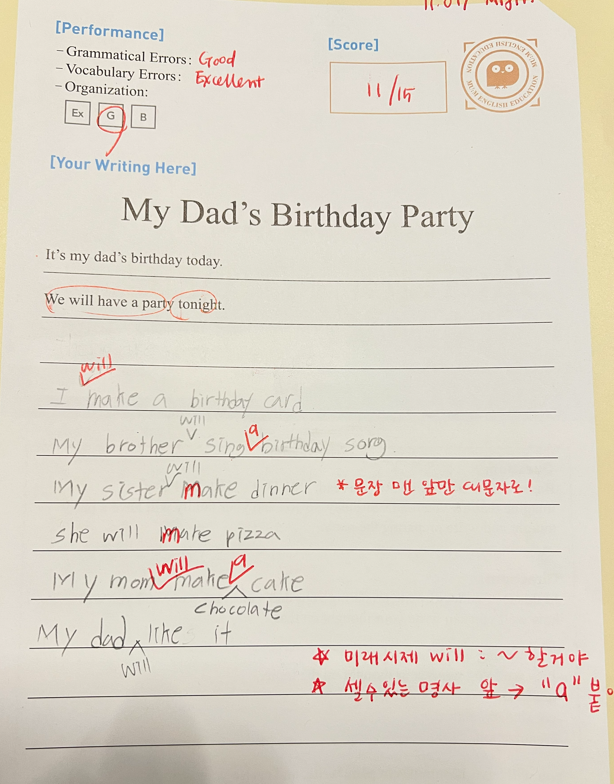 [Performance]
- Grammatical Errors: Good
- Vocabulary Errors: Excellent
- Organization:
Ex G B
[Score]
11/15
MUM ENGLISH EDUCATION
MUM ENGLISH EDUCATION
[Your Writing Here]
My Dad's Birthday Party
It's my dad's birthday today.
We will have a party tonight.
will
I make a birthday card
will a
My brother sing birthday song.
will
My sister make dinner * 문장 맨 앞만 대문자로!
she will make pizza
will a
My mom make cake
chocolate
My dad like it
will
☆ 미래시제 will : ~ 할거야
☆ 셀수있는 명사 앞 → "a" 붙